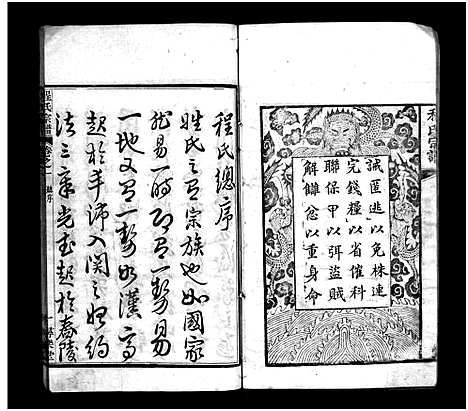 程氏宗譜
誡匿逃以免株連
完錢糧以省催科
聯保甲以弭盜賊
解讎忿以重身命
程氏總序
姓氏之有宗族也如國家
然易一時即有一勢易
一地又有一勢如漢高
起於平沛入関之始約
法三章光武起於舂陵
程氏宗譜
卷之一
總序